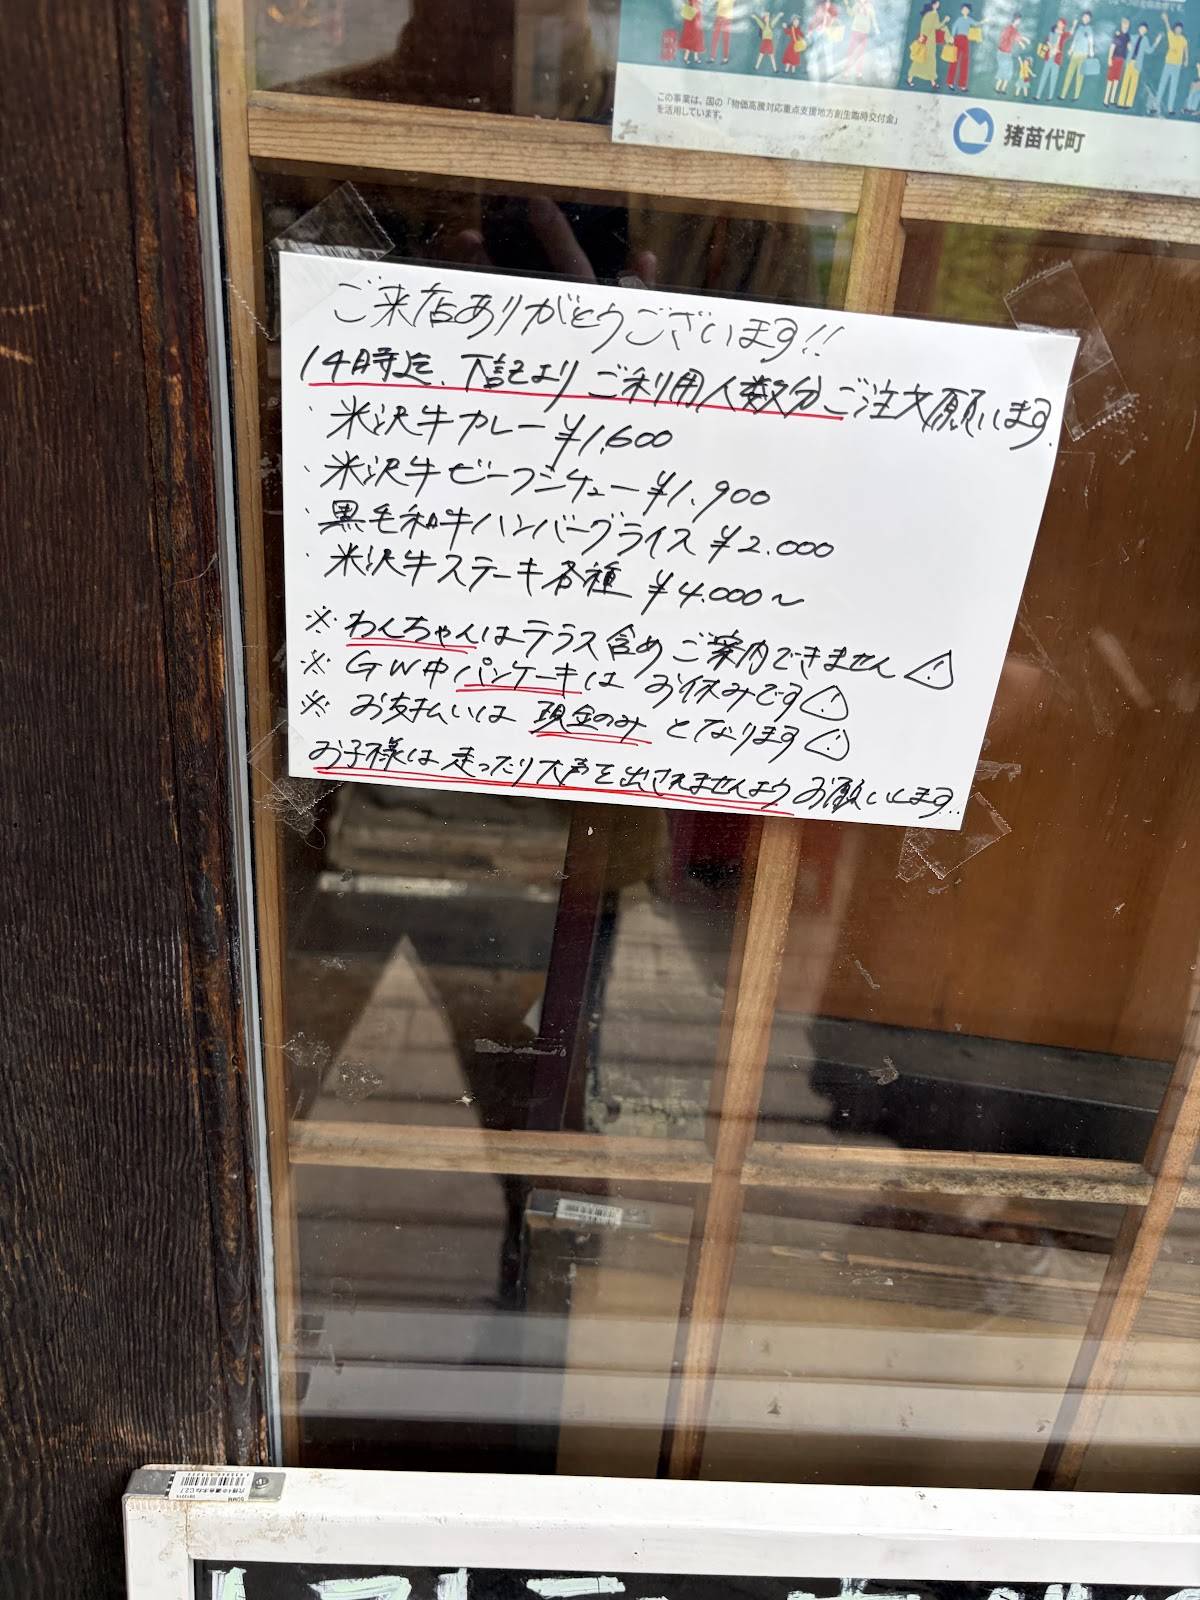 この事業は、国の「物価高騰対応重点支援地方創生臨時交付金」
を活用しています。
猪苗代町
ご来店ありがとうございます!!
14時迄、下記よりご利用人数分ご注文願います.
・米沢牛カレー ¥1,600
・米沢牛ビーフシチュー ¥1,900
・黒毛和牛ハンバーグライス ¥2.000
・米沢牛ステーキ各種 ¥4.000〜
※ わんちゃんはテラス含めご案内できません⚠
※ GW中パンケーキは お休みです⚠
※ お支払いは 現金のみ となります⚠
お子様は走ったり大声を出されませんようお願いします..